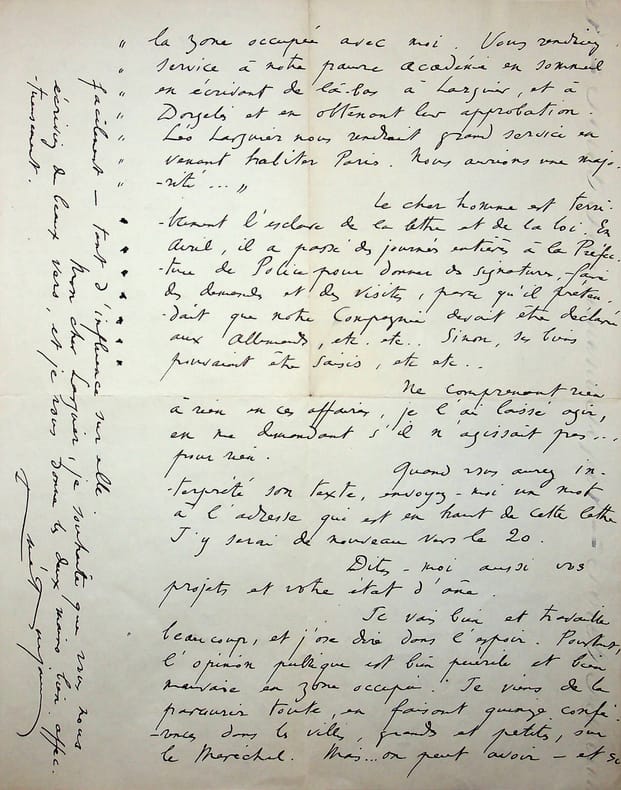 " la zone occupée avec moi. Vous rendriez
" service à notre pauvre académie en sommeil
" en écrivant de là-bas à Larguier, et à
" Dorgelès et en obtenant leur approbation.
" Léo Larguier nous rendrait grand service en
" venant habiter Paris. Nous aurions une majo-
" -rité... "
Le cher homme est terri-
-blement l'esclave de la lettre et de la loi. En
Avril, il a passé des journées entières à la Préfec-
-ture de Police pour donner des signatures, faire
des demandes et des visites, parce qu'il préten-
-dait que notre Compagnie devait être déclarée
aux Allemands, etc.. etc.. Sinon, ses biens
pouvaient être saisis, etc etc..
Ne comprenant rien
à rien en ces affaires, je l'ai laissé agir,
en me demandant s'il n'agissait pas...
pour rien.
Quand vous aurez in-
-terprété son texte, envoyez-moi un mot
à l'adresse qui est en haut de cette lettre
J'y serai de nouveau vers le 20.
Dites-moi aussi vos
projets et votre état d'âme.
Je vais bien et travaille
beaucoup, et j'ose dire dans l'espoir. Pourtant,
l'opinion publique est bien puérile et bien
mauvaise en zone occupée. Je viens de la
parcourir toute, en faisant quinze confé-
-rences dans les villes, grandes et petites, sur
le Maréchal. Mais... on peut avoir — et si
facilement — tant d'influence sur elle.
Mon cher Larguier, je souhaite que vous nous
écriviez de beaux vers, et je vous donne les deux mains bien affec-
-tueusement.